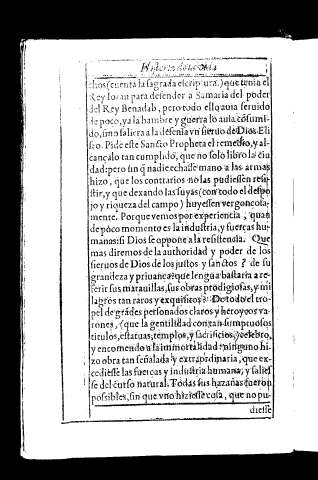 Historia de la vida
chos (cuenta la sagrada escriptura) que tenia el
Rey Ioran para defender a Samaria del poder
del Rey Benadab, pero todo ello auia seruido
de poco, ya la hambre y guerra lo auia cōsumi-
do, sino saliera a la defensa vn sieruo de Dios Eli
seo. Pide este Sancto Propheta el remedio, y al-
cançalo tan cumplido, que no solo libro la ciu
dad: pero sin q̄ nadie echasse mano a las armas
hizo, que los contrarios no las pudiessen resi-
stir, y que dexando las suyas (con todo el despo
jo y riqueza del campo) huyessen vergonçosa-
mente. Porque vemos por experiencia, quan
de poco momento es la industria, y fuerças hu-
manas: si Dios se oppone a la resistencia. Que
mas diremos de la authoridad y poder de los
sieruos de Dios de los justos y sanctos? de su
grandeza y priuança? que lengua bastaria a re-
ferir sus marauillas, sus obras prodigiosas, y mi
lagros tan raros y exquisitos? De todo el tro-
pel de grādes personados claros y heroycos va-
rones, (que la gentilidad con tan sumptuosos
titulos, estatuas, templos, y sacrificios) celebro,
y encomendo a la immortalidad: ninguno hi-
zo obra tan señalada y extraordinaria, que ex-
cediesse las fuerças y industria humana, y salies
se del curso natural. Todas sus hazañas fueron
possibles, sin que vno hiziesse cosa, que no pu-
diesse